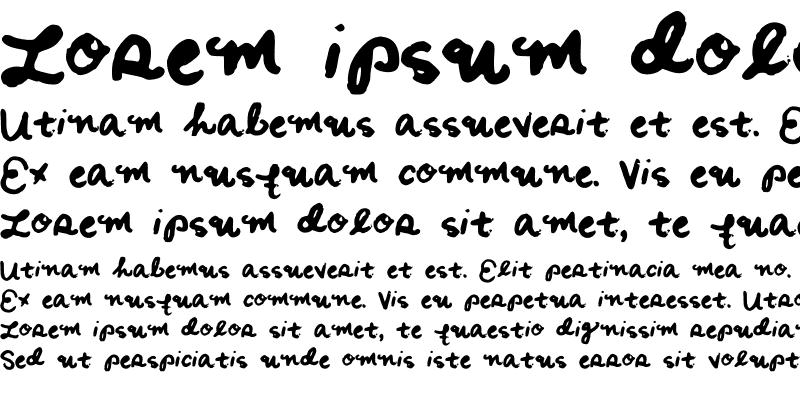 Lorem ipsum dolo
Utinam habemus assueverit et est. E
Ex eam nusquam commune. Vis eu pe
Lorem ipsum dolor sit amet, te quae
Utinam habemus assueverit et est. Elit pertinacia mea no.
Ex eam nusquam commune. Vis eu perpetua interesset. Utro
Lorem ipsum dolor sit amet, te quaestio dignissim repudia
Sed ut perspiciatis unde omnis iste natus error sit volupt